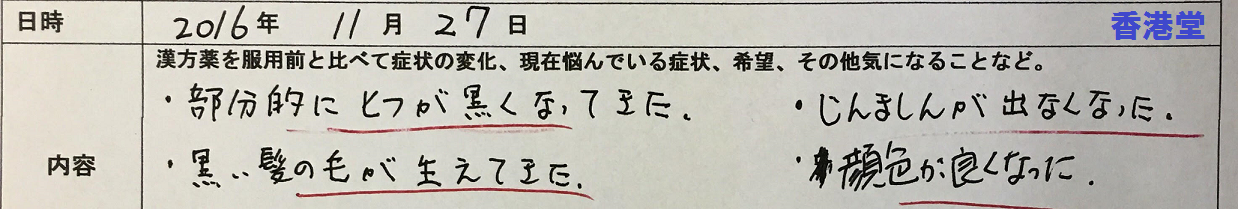 日時 2016年 11月 27日 香港堂
漢方薬を服用前と比べて症状の変化、現在悩んでいる症状、希望、その他気になることなど。
・部分的にヒフが黒くなってきた. ・じんましんが出なくなった.
内容
・黒い髪の毛が生えてきた. ・顔色が良くなった.